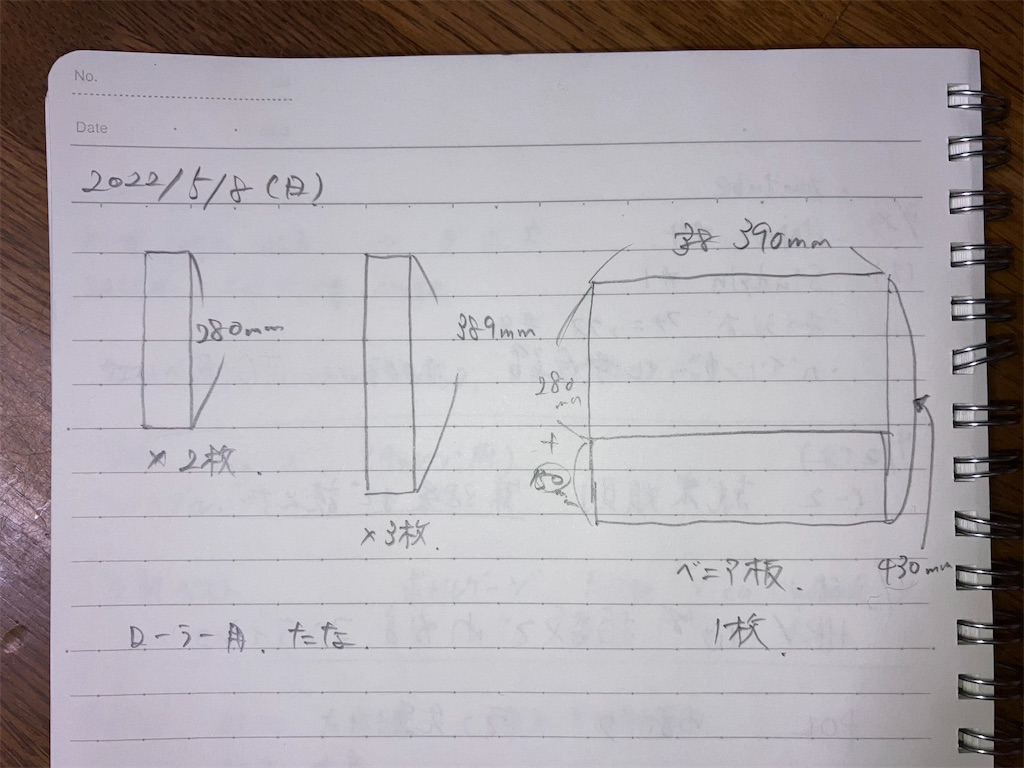 No.
Date
2022/5/8(日)
390mm
280mm
389mm
280
mm
+
150
mm
×2枚.
×3枚.
ベニア板.
430mm
1枚.
ローラー用.たな.